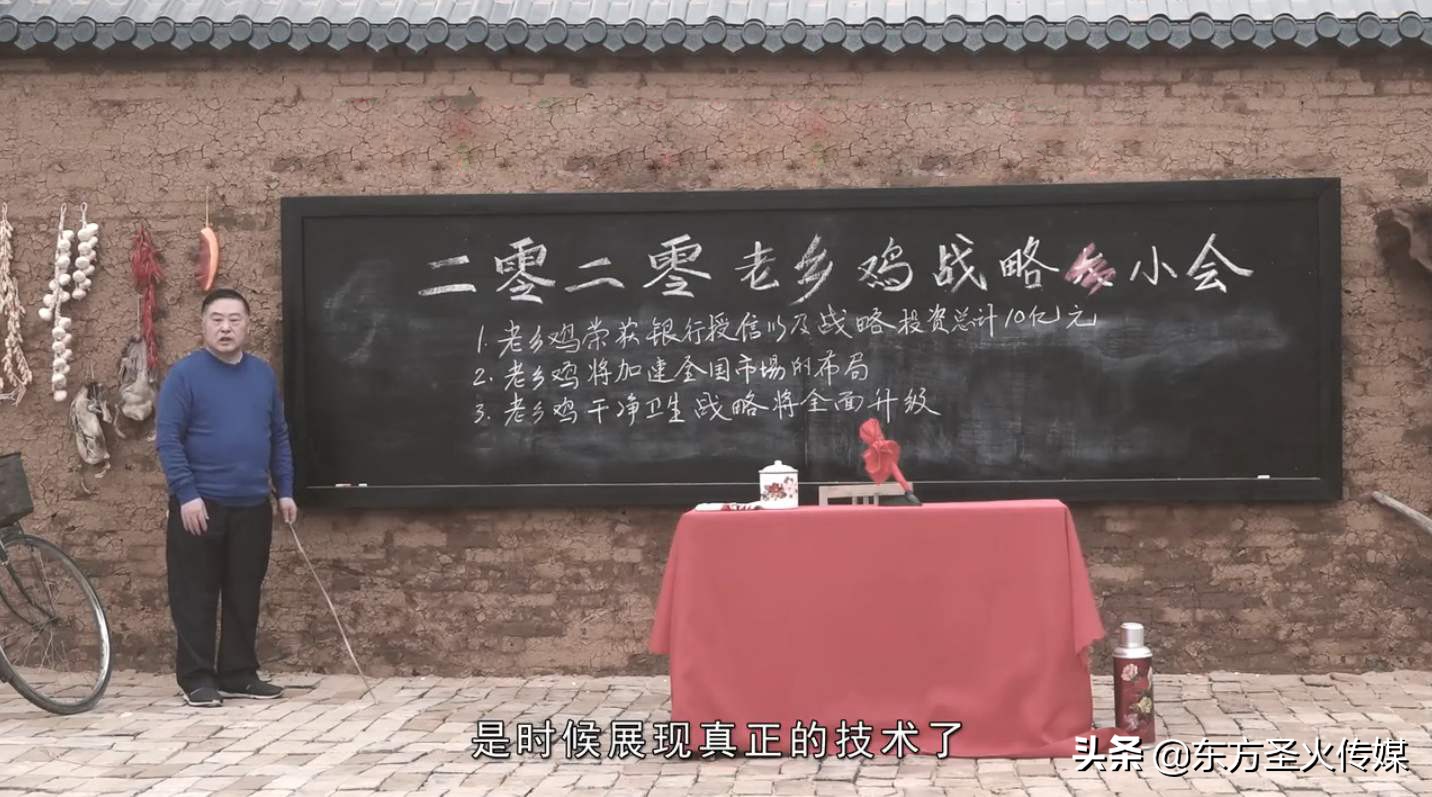 二零二零老乡鸡战略小会
1. 老乡鸡荣获银行授信以及战略投资总计10亿元
2. 老乡鸡将加速全国市場的布局
3. 老乡鸡干净卫生战略将全面升级
是时候展现真正的技术了
头条 @东方圣火传媒